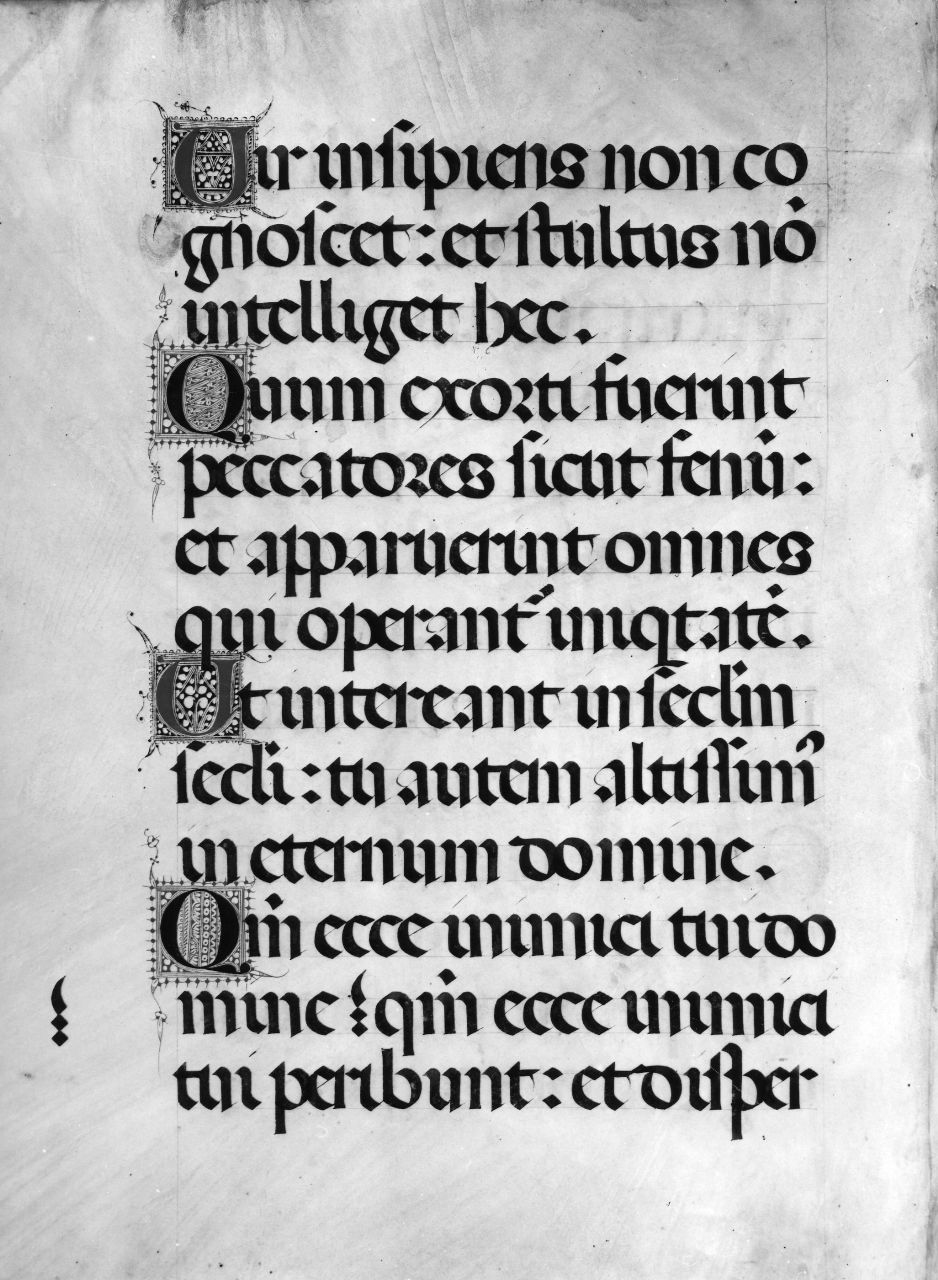 Uir insipiens non co
gnoscet : et stultus nō
intelliget hec .
Quum exorti fuerint
peccatores sicut fenū :
et apparuerint omnes
qui operant᷑ iniqtatē .
Ut intereant in seclm̄
secli : tu autem altissim᷒
in eternum domine .
Qm̄ ecce inimici tui do
mine : qm̄ ecce inimici
tui peribunt : et disper